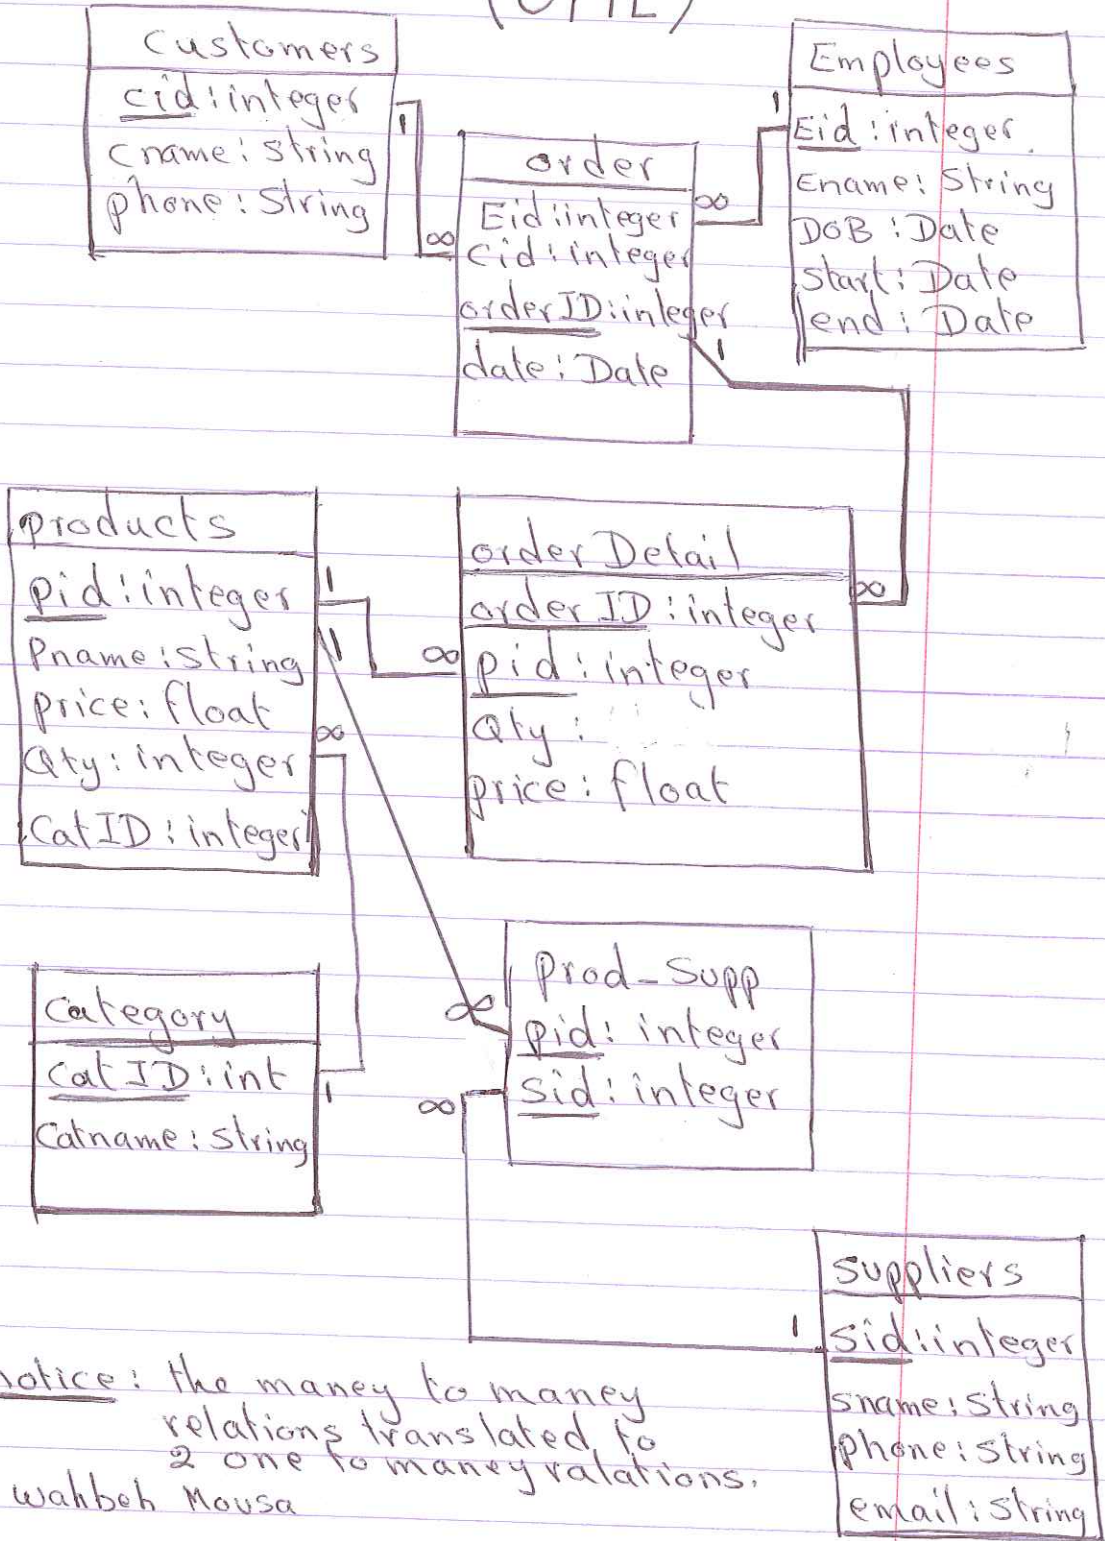 (UML)
Customers
cid:integer
Cname:String
phone:String
1
∞
order
Eid:integer
Cid:integer
orderID:integer
date:Date
∞
1
1
Employees
Eid:integer
Ename:String
DOB:Date
start:Date
end:Date
products
pid:integer
Pname:String
price:float
Qty:integer
CatID:integer
1
1
∞
∞
orderDetail
orderID:integer
pid:integer
Qty:
price:float
∞
Category
CatID:int
Catname:String
1
∞
∞
Prod-Supp
pid:integer
Sid:integer
1
suppliers
Sid:integer
sname:String
phone:String
email:String
notice: the maney to maney
relations translated to
2 one to maney ralations.
wahbeh Mousa